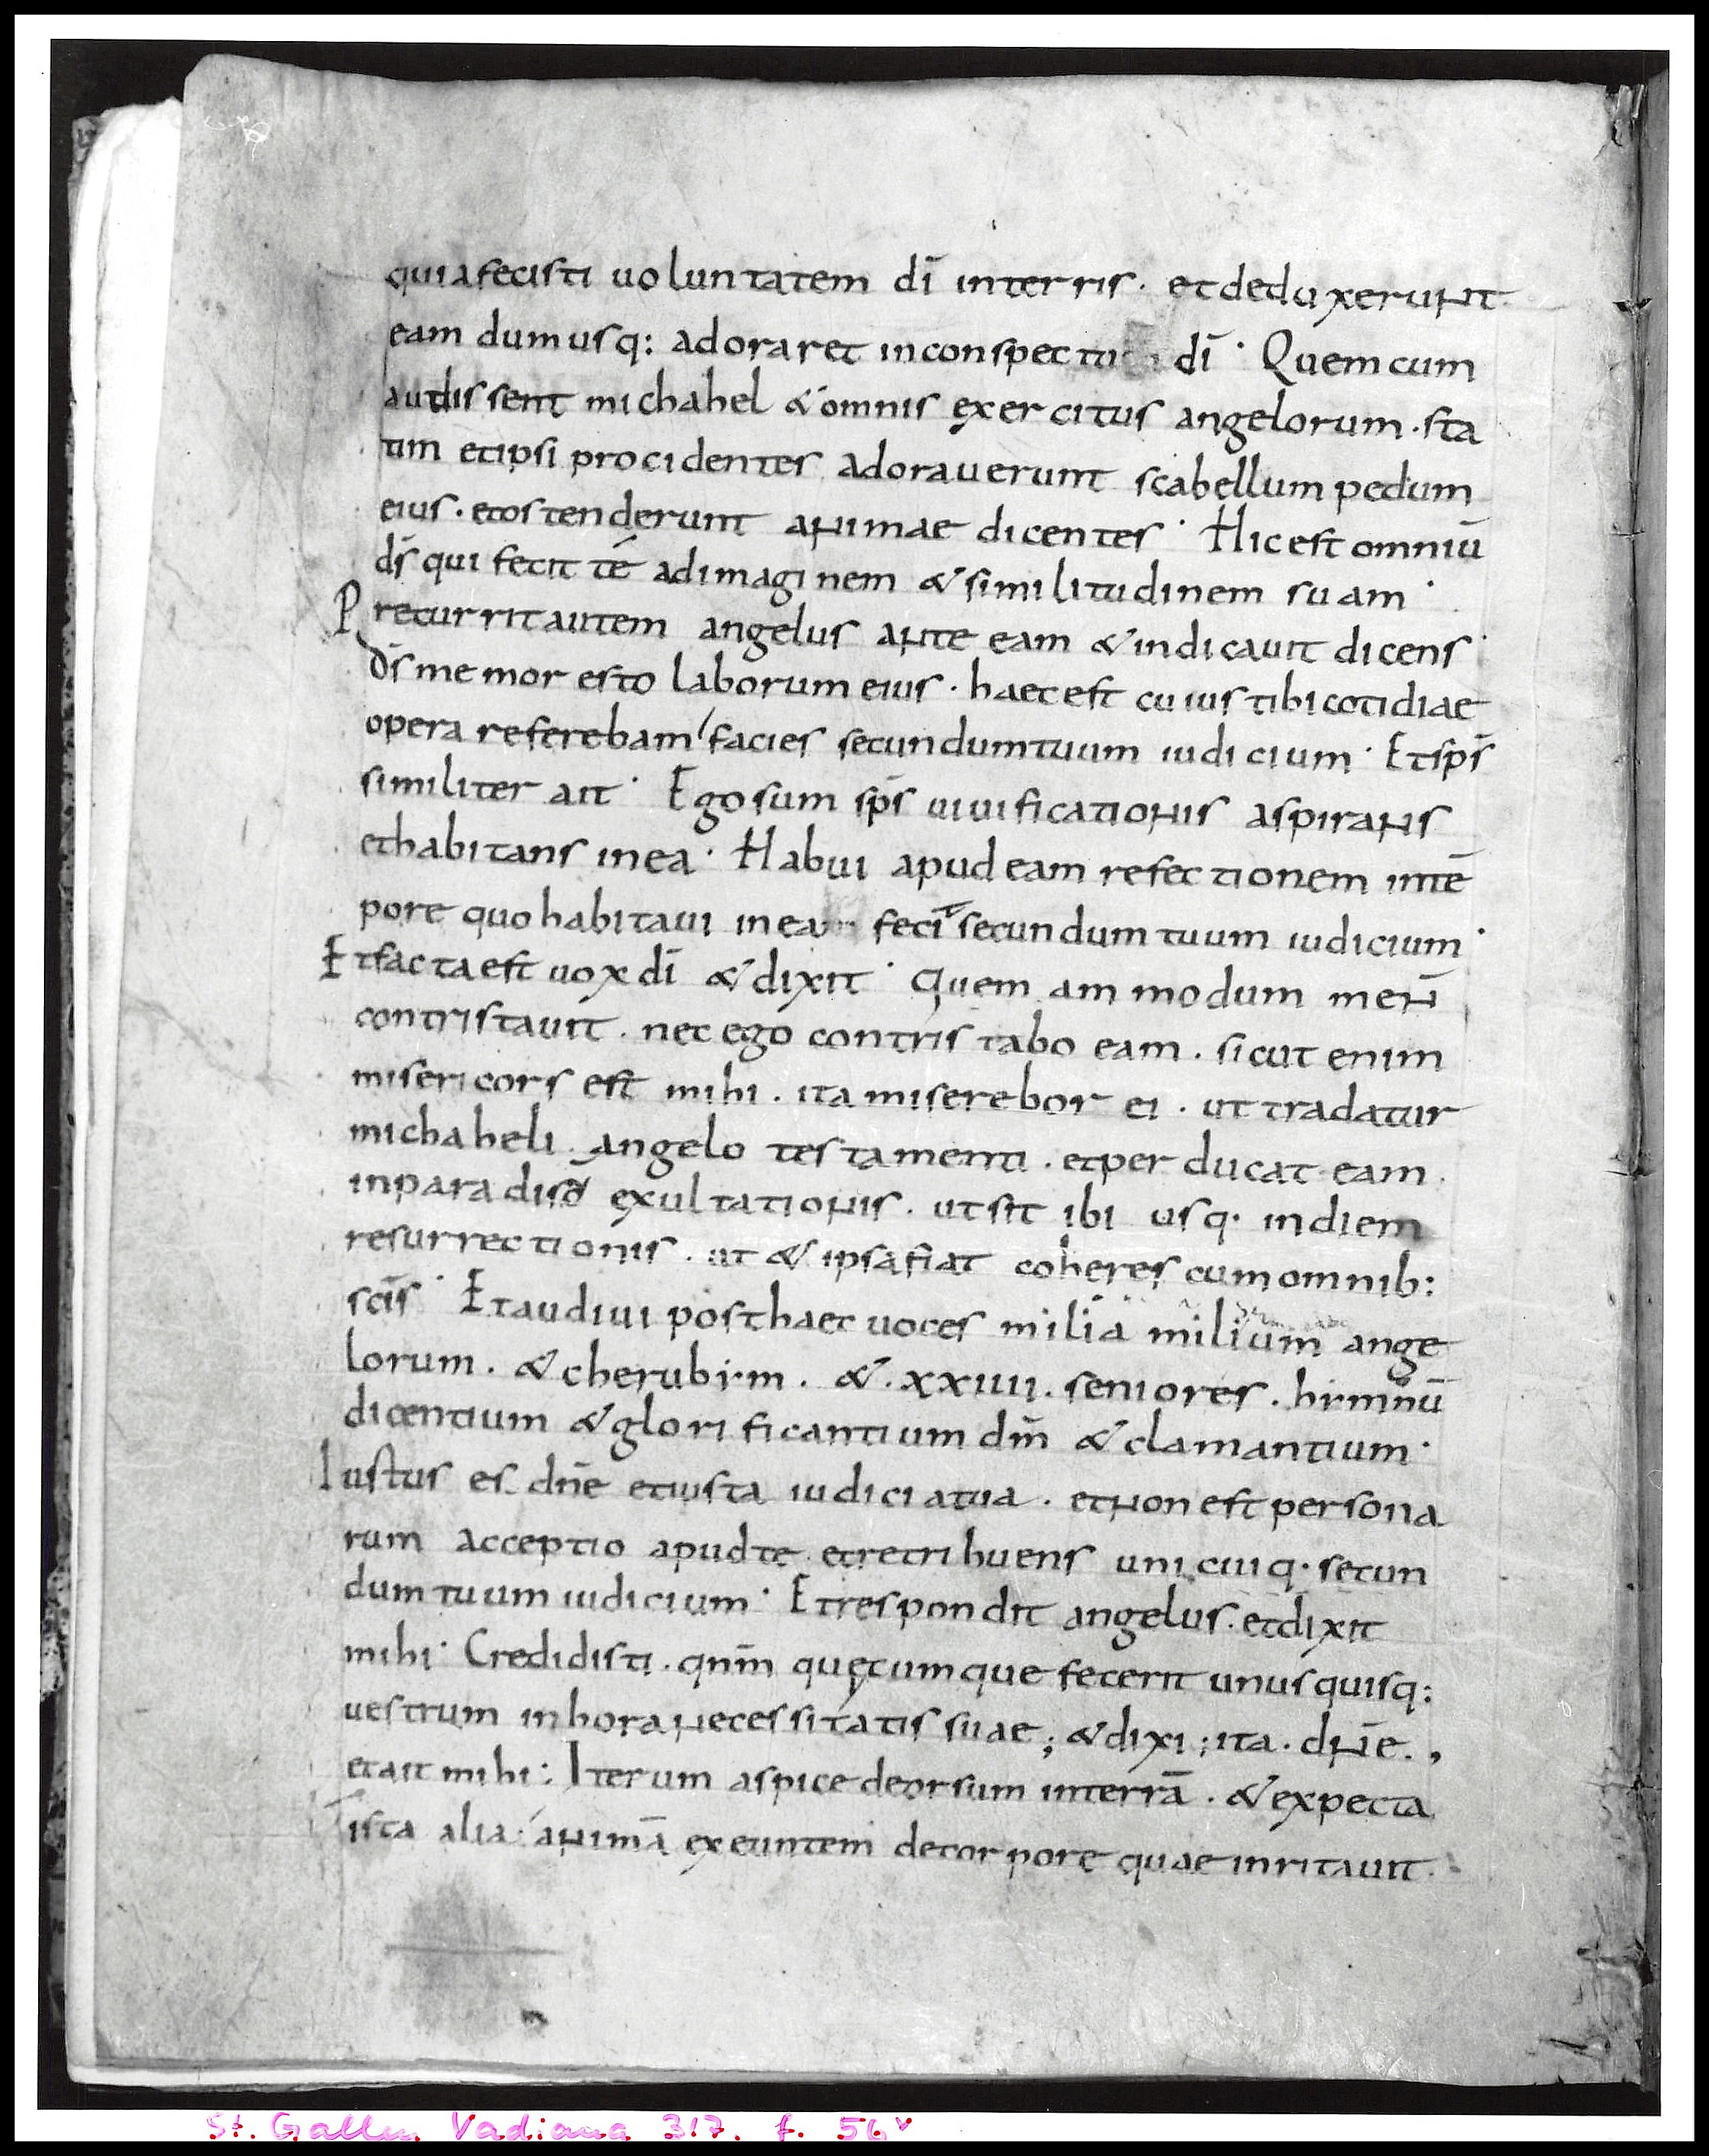 quia fecisti uoluntatem dī interris · et deduxerunt
eam dumusq: adoraret inconspectu dī · Quemcum
audissent michahel & omnis exercitus angelorum · sta
tim etipsi procidentes adorauerunt scabellum pedum
eius · etostenderunt animae dicentes · Hic est omniū
ds̄ qui fecit té adimaginem & similitudinem suam ·
Precurrit autem angelus ante eam & indicauit dicens ·
ds̄ memor esto laborum eius · haec est cuius tibi cotidiae
opera referebam / facies secundum tuum iudicium · Et sps̄
similiter ait · Ego sum sps̄ uiuificationis aspirans
ethabitans in ea · Habui apud eam refectionem intē
pore quo habitaui in ea feci secundum tuum iudicium ·
Et facta est uox dī & dixit · Quem ammodum me n̄
contristauit · nec ego contristabo eam · sicut enim
misericors est mihi · ita miserebor ei · ut tradatur
michaheli angelo testamenti · et perducat eam ·
inparadiso exultationis · ut sit ibi usq· indiem
resurrectionis · ut & ipsa fiat coheres cum omnib:
scīs · Et audiui post haec uoces milia milium ange
lorum · & cherubim · & · xxiiii · seniores · himnū
dicentium & glorificantium dm̄ & clamantium ·
Iustus es dn̄e et iusta iudicia tua · et non est persona
rum acceptio apud te et retribuens unicuiq· secun
dum tuum iudicium · Et respondit angelus · et dixit
mihi · Credidisti · qnm̄ quęcumque fecerit unusquisq:
uestrum in hora necessitatis suae ; & dixi ; ita · dn̄e · ,
et ait mihi : Iterum aspice deorsum interrā · & expecta
ista alia animā exeuntem decorpore quae inritauit ·
St. Gallen Vadiana 317. f. 56v